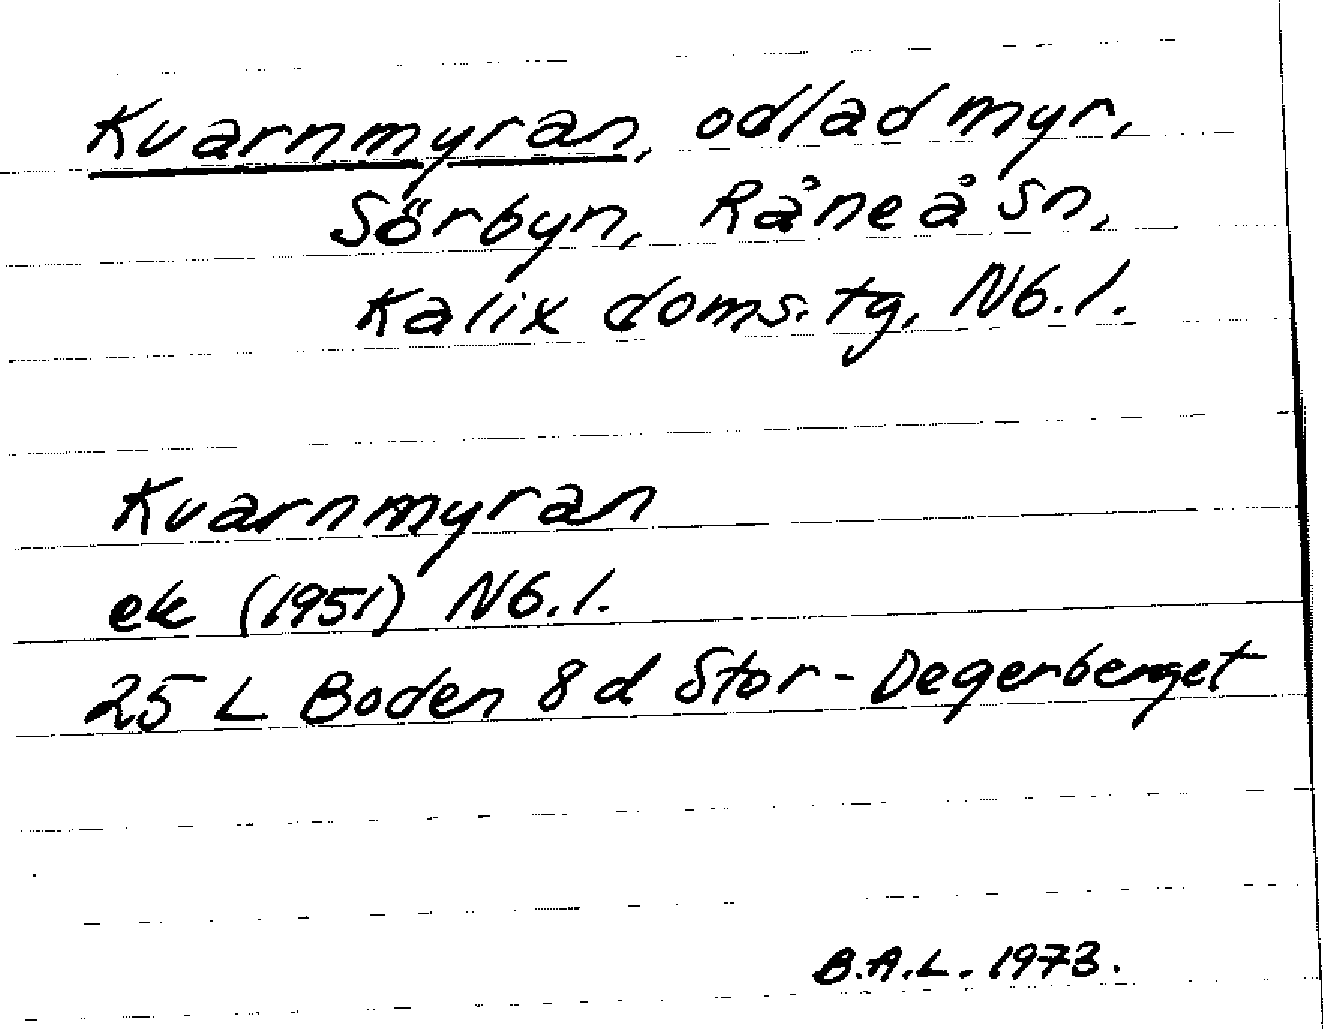 Kvarnmyran, odlad myr,
Sörbyn, Råneå sn,
Kalix doms. tg, Nb. l.
Kvarnmyran
ek (1951) Nb. l.
25 L Boden 8 d Stor-Degerberget
B.A.L. 1973.